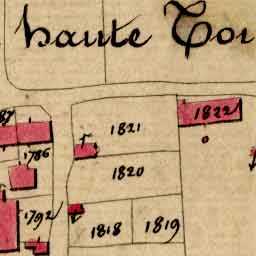 haute
1822
87
1821
1786
1820
1792
1818
1819